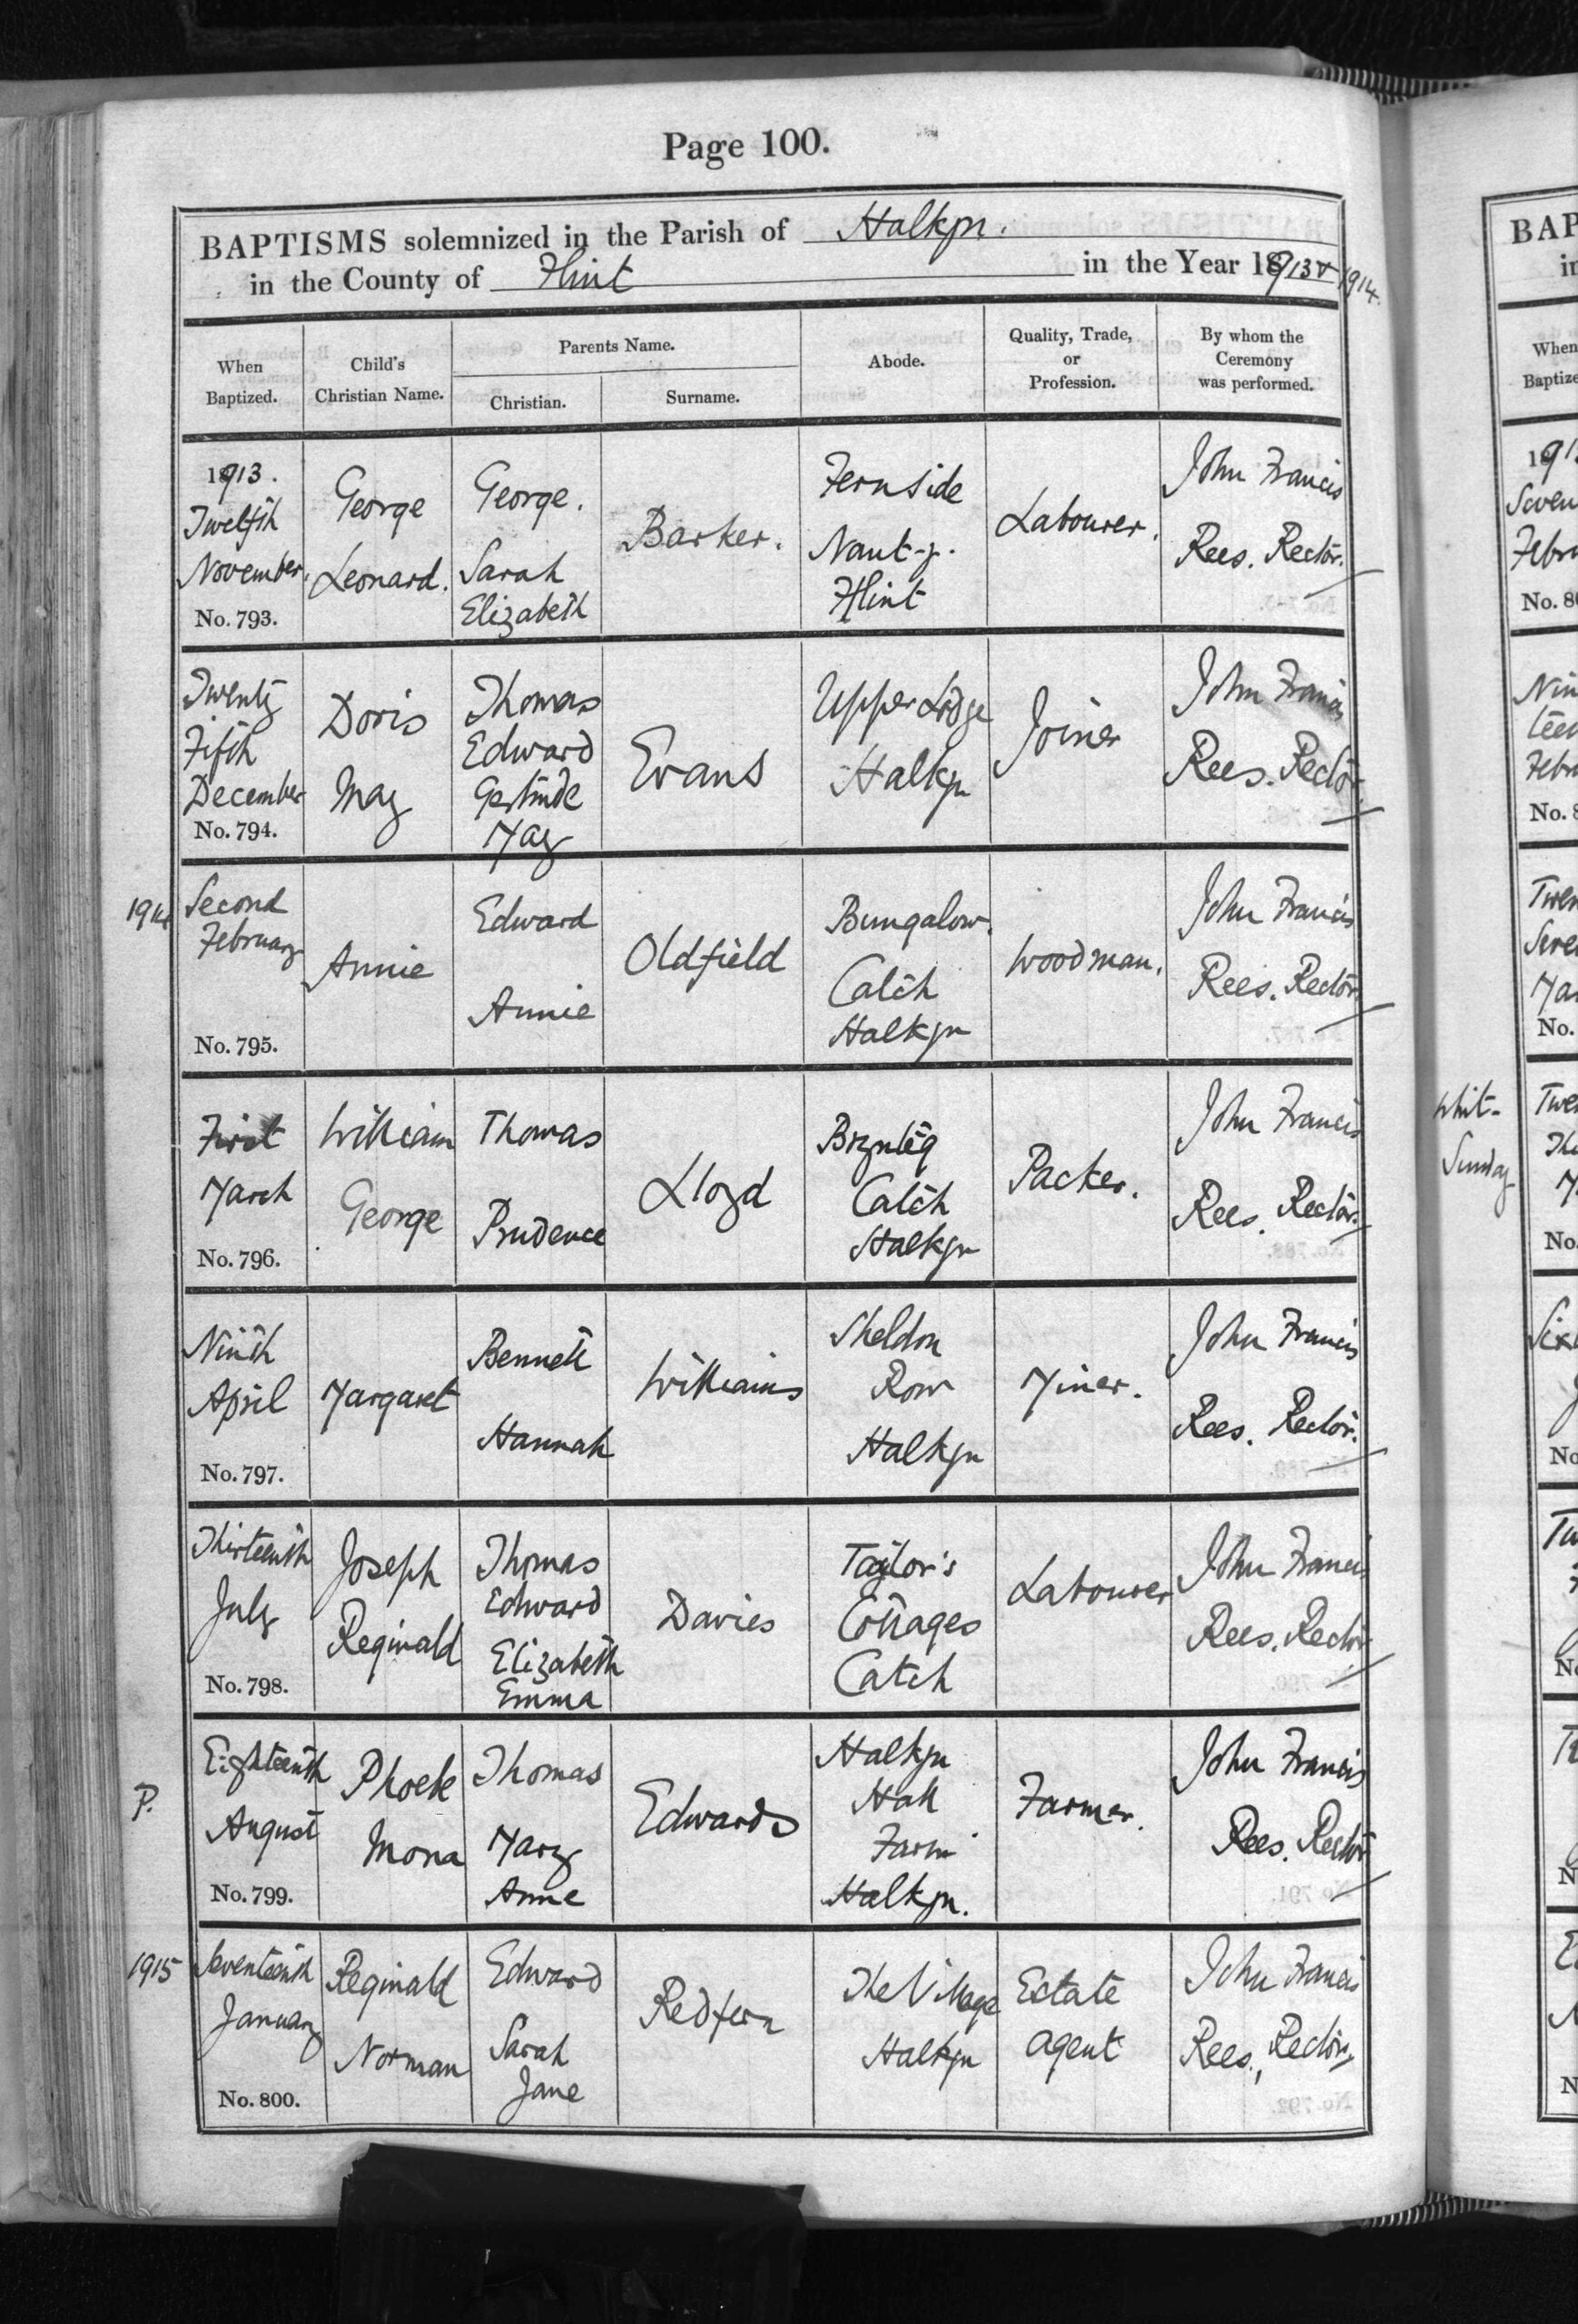 Page 100.
BAPTISMS solemnized in the Parish of Halkyn.
in the County of Flint in the Year 1913 & 1914.
When Baptized.
Child's Christian Name.
Parents Name.
Christian.
Surname.
Abode.
Quality, Trade, or Profession.
By whom the Ceremony was performed.
1913.
Twelfth
November.
No. 793.
George
Leonard.
George.
Sarah
Elizabeth
Barker.
Fernside
Nant-y-
Fflint
Labourer.
John Francis
Rees. Rector.
Twenty
Fifth
December
No. 794.
Doris
May
Thomas
Edward
Gertrude
May
Evans
Upper Lodge
Halkyn
Joiner
John Francis
Rees. Rector.
1914
Second
February
No. 795.
Annie
Edward
Annie
Oldfield
Bungalow.
Catch
Halkyn
Woodman.
John Francis
Rees. Rector.
First
March
No. 796.
William
George
Thomas
Prudence
Lloyd
Brynteg
Catch
Halkyn
Packer.
John Francis
Rees. Rector.
Ninth
April
No. 797.
Margaret
Bennett
Hannah
Williams
Sheldon
Row
Halkyn
Miner.
John Francis
Rees. Rector.
Thirteenth
July
No. 798.
Joseph
Reginald
Thomas
Edward
Elizabeth
Emma
Davies
Taylor's
Cottages
Catch
Labourer
John Francis
Rees. Rector
P.
Eighteenth
August
No. 799.
Phoebe
Mona
Thomas
Mary
Anne
Edwards
Halkyn
Hall
Farm
Halkyn.
Farmer.
John Francis
Rees. Rector
1915
Seventeenth
January
No. 800.
Reginald
Norman
Edward
Sarah
Jane
Redfern
The Village
Halkyn
Estate
agent
John Francis
Rees, Rector.
Whit-
Sunday